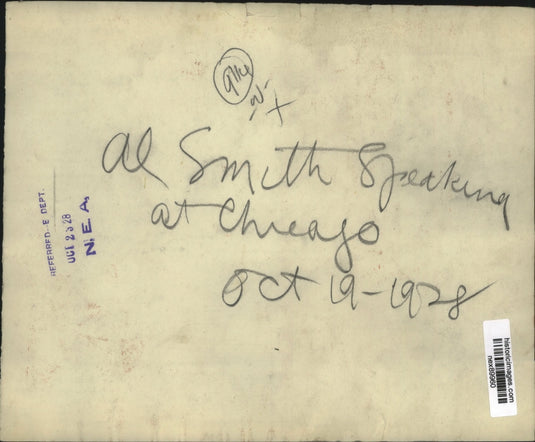 -2-
Al Smith Speaking
at Chicago
Oct 19-1928
REFERRED E DEPT.
OCT 23 28
N. E. A.
historicimages.com